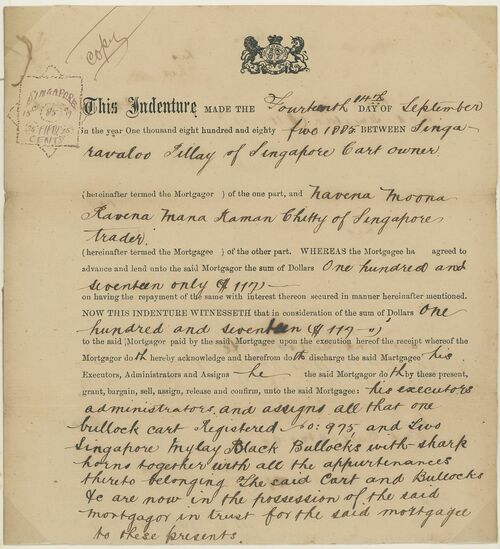 copy
SINGAPORE
FIFTY
CENTS
This Indenture MADE THE Fourteenth 14th DAY OF September
in the year One thousand eight hundred and eighty five 1885 BETWEEN Singa-
ravaloo Pillay of Singapore Cart owner
(hereinafter termed the Mortgagor ) of the one part, and Navena Moona
Kavena Mana Raman Chitty of Singapore
trader.
(hereinafter termed the Mortgagee ) of the other part. WHEREAS the Mortgagee ha agreed to
advance and lend unto the said Mortgagor the sum of Dollars One hundred and
seventeen only ($ 117)—
on having the repayment of the same with interest thereon secured in manner hereinafter mentioned.
NOW THIS INDENTURE WITNESSETH that in consideration of the sum of Dollars One
hundred and seventeen ($ 117 - ")
to the said Mortgagor paid by the said Mortgagee upon the execution hereof the receipt whereof the
Mortgagor doth hereby acknowledge and therefrom doth discharge the said Martgagee his
Executors, Administrators and Assigns — he — the said Mortgagor doth by these present,
grant, bargain, sell, assign, release and confirm, unto the said Mortgagee: his executors
administrators, and assigns all that one
bullock cart Registered No: 975 and two
Singapore Black Bullocks with sharp
horns together with all the appurtenances
thereto belonging The said Cart and Bullocks
&c are now in the possession of the said
mortgagor in trust for the said mortgagee
to these presents.